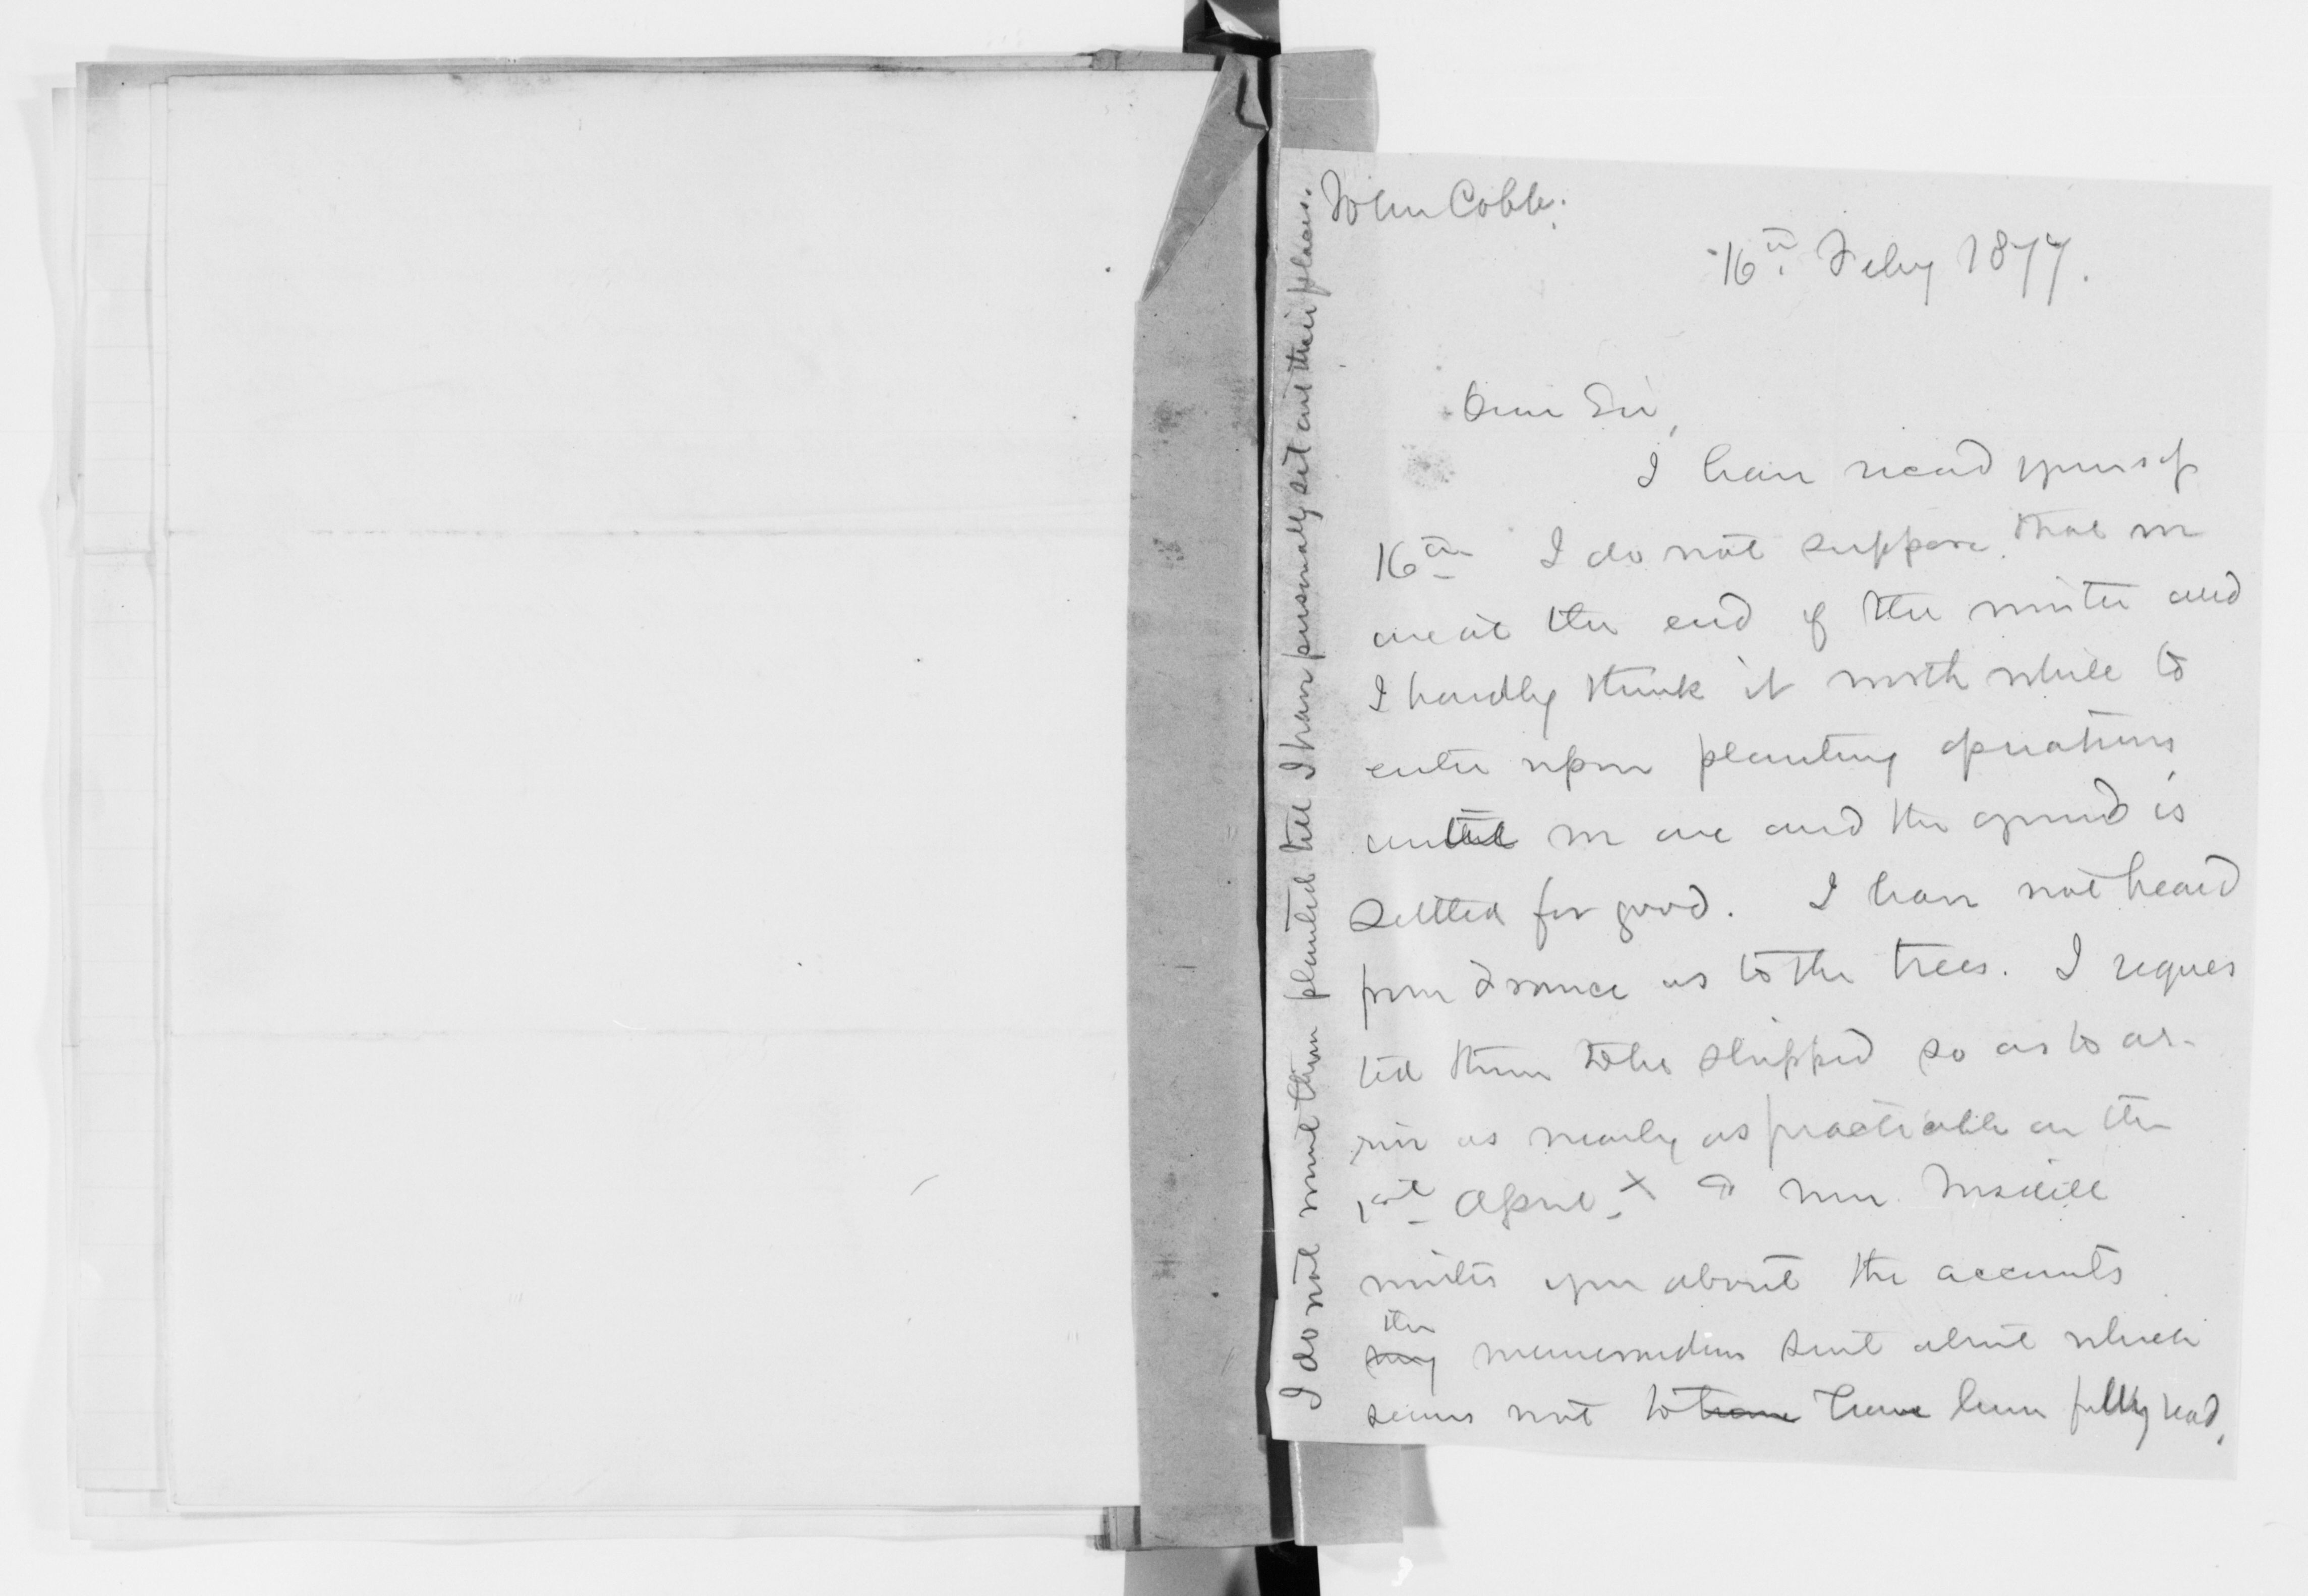 John Cobb.
16th Feby 1877.
Dear Sir,
I have recd yours of
16th I do not suppose that we
are at the end of the winter and
I hardly think it worth while to
enter upon planting operations,
until we are and the ground is
settled for good. I have not heard
from as to the trees. I reques
ted them to be shipped so as to ar-
rive as nearly as practicable on the
1st April. X Mr.
writes you about the accounts
the
my memorandum sent about which
seems not to have have been fully read,
I do not want them planted till I have personally set out their places.